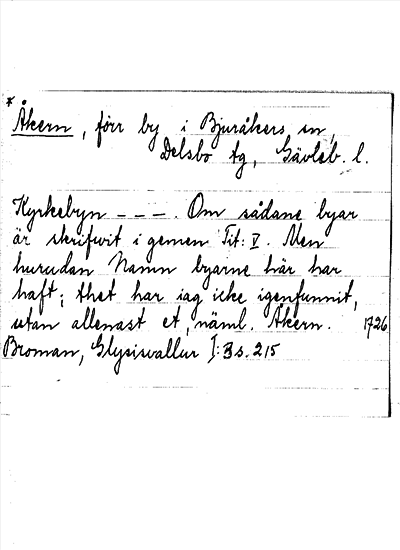 * Åkern, förr by i Bjuråkers sn,
Delsbo tg, Gävleb. l.
Kyrkebyn - - - . Om sådane byar
är skrifwit i gemen Tit: V. Men
hurudan Namn byarne här har
haft; thet har iag icke igenfunnit,
utan allenast et, näml. Åkern. 1726
Broman, Glysisvallur I: 3 s. 215